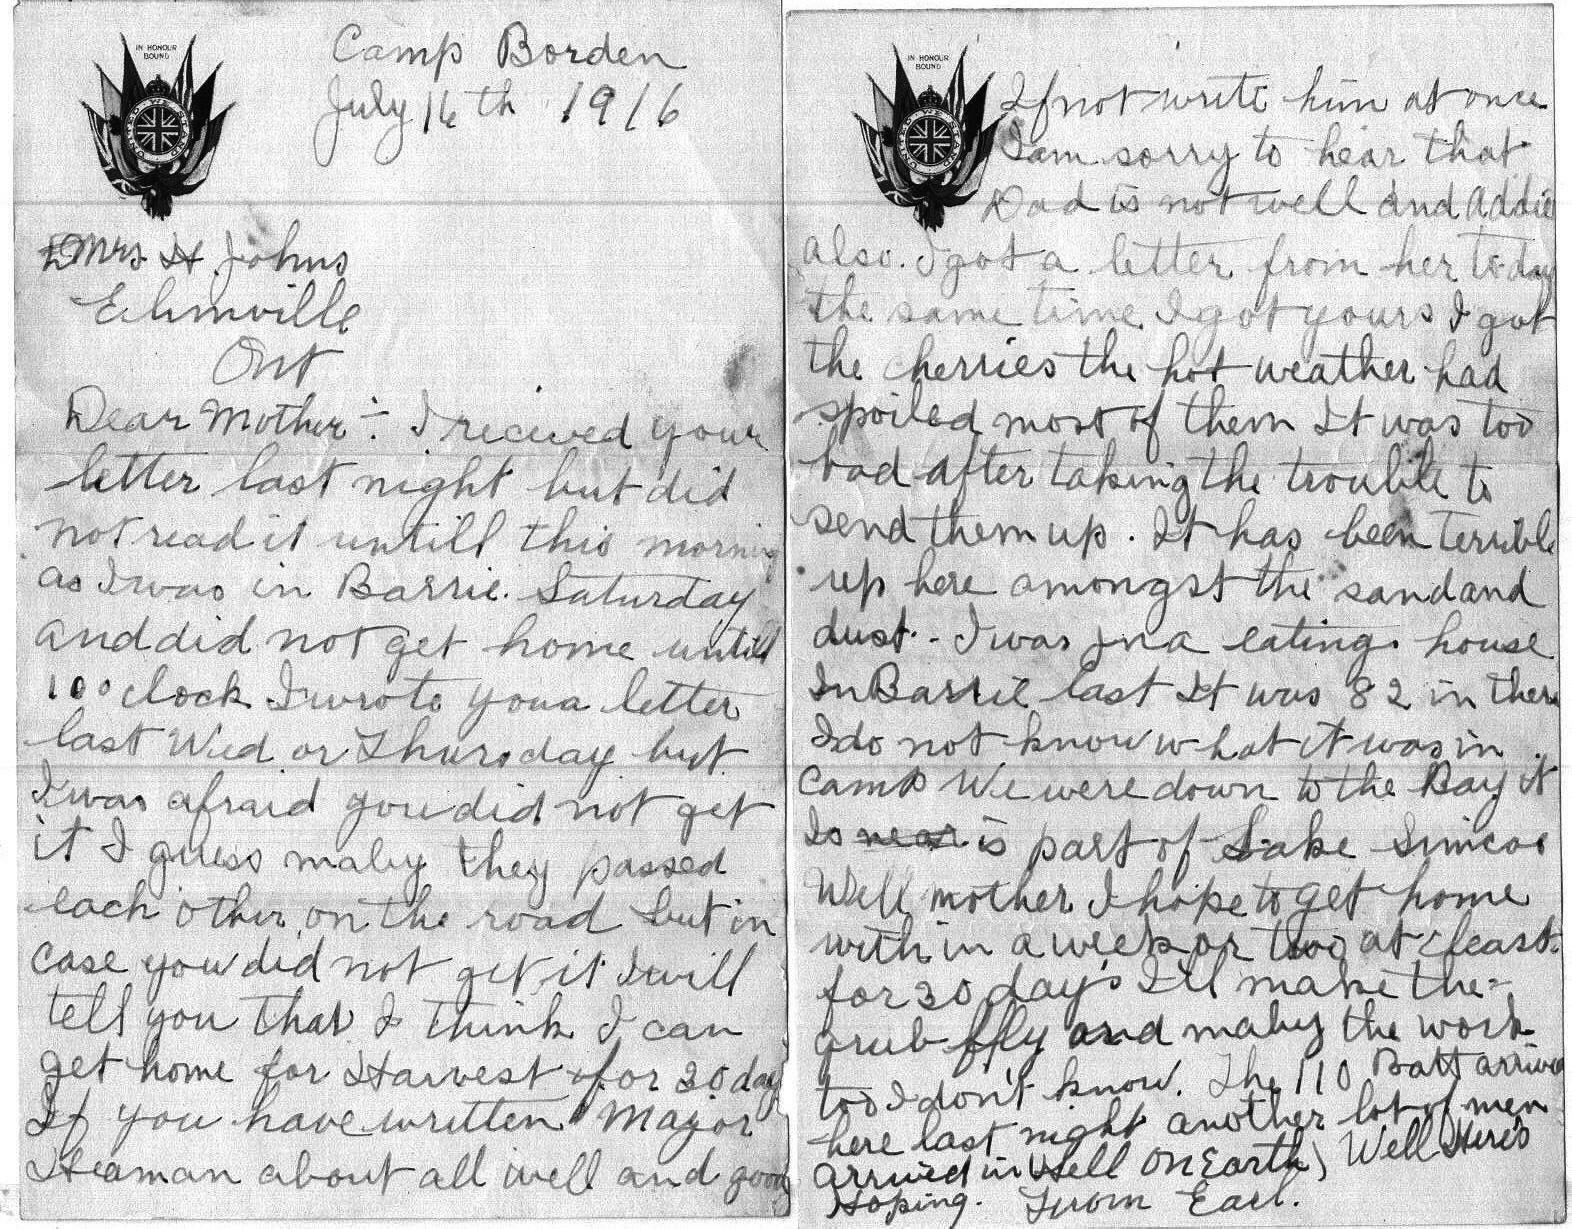 IN HONOUR
BOUND
UNITED WE STAND
Camp Borden
July 16th 1916
Mrs H. Johns
Elimville
Ont
Dear Mother :- I recieved your
letter last night but did
not read it untill this morning
as I was in Barrie. Saturday
and did not get home untill
10 oclock I wrote you a letter
last Wed or Thursday but
I was afraid you did not get
it I guess maby they passed
each other, on the road but in
case you did not get it I will
tell you that I think I can
get home for Harvest for 30 day
If you have written Major
Heaman about all well and good
IN HONOUR
BOUND
UNITED WE STAND
If not write him at once
I am sorry to hear that
Dad is not well and Addie
also. I got a letter from her today
the same time I got yours I got
the cherries the hot weather had
spoiled most of them It was too
bad after taking the trouble to
send them up. It has been terrible
up here amongst the sand and
dust. - I was in a eating house
In Barrie last It was 82 in there
I do not know what it was in
camp We were down to the Bay it
Is near is part of Lake Simcoe
Well mother I hope to get home
with in a week or two at least
for 30 day's I'll make the-
grub ffly and maby the work
too I don't know. The 110 Batt arrived
here last night another lot of men
arrived in (Hell on Earth) Well Here's
Hoping. From Earl.